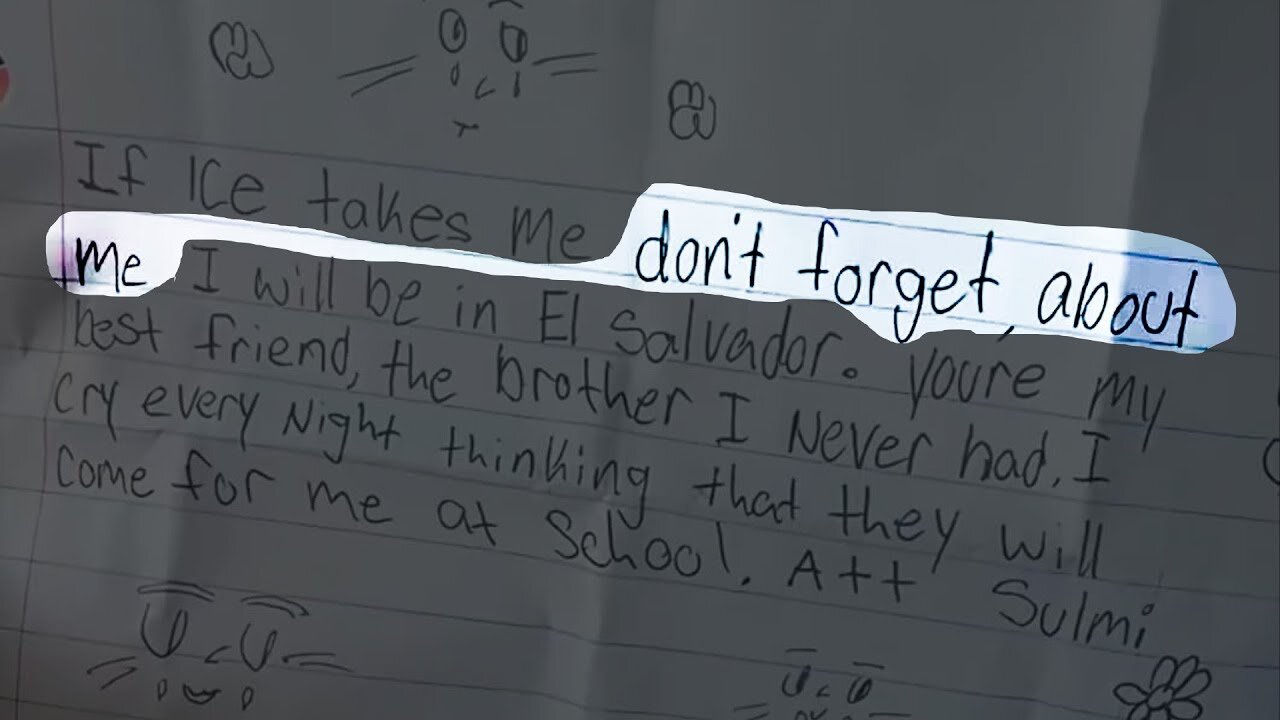 If ICe takes me don't forget about
me I will be in El Salvador. you're my
best friend, the brother I Never had. I
cry every Night thinking that they will
come for me at School. A++ Sulmi